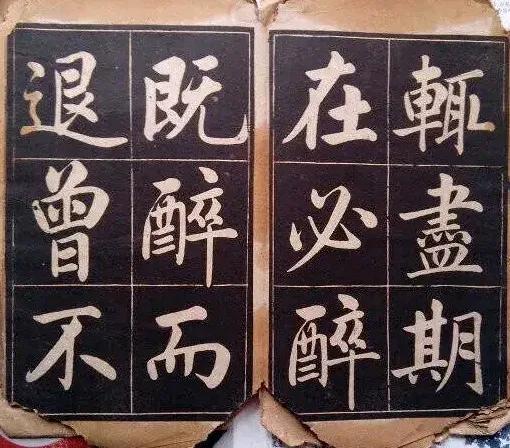 輒盡期
在必醉
既醉而
退曾不